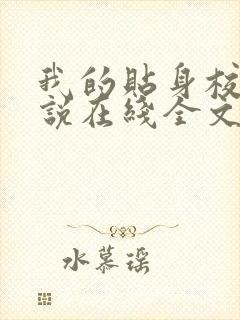 我的貼身校
說在綫全文
水慕瑶